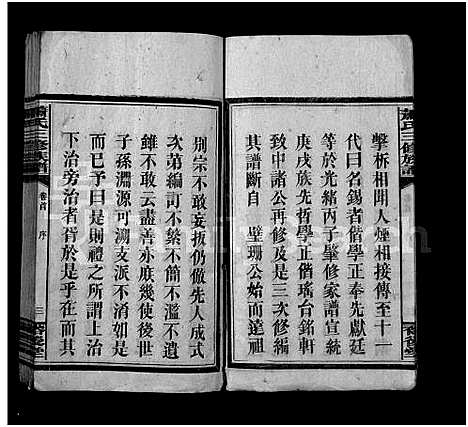 擊柝相聞人煙相接傳至十一
代曰名錫者偕學正奉先獻廷
等於光緒丙子肇修家譜宣統
庚戌族先哲學正偕瑤台銘軒
致中諸公再修及是三次修編
其譜斷自 壁珊公始而達祖
別宗不敢妄扳仍倣先人成式
次第編訂不繁不簡不濫不遺
雖不敢云盡善亦庶幾使後世
子孫淵源可溯支派不淆
而已予曰是則禮之所謂上治
下治旁治者胥於是乎在而其
氏三修族譜
卷首 序 三